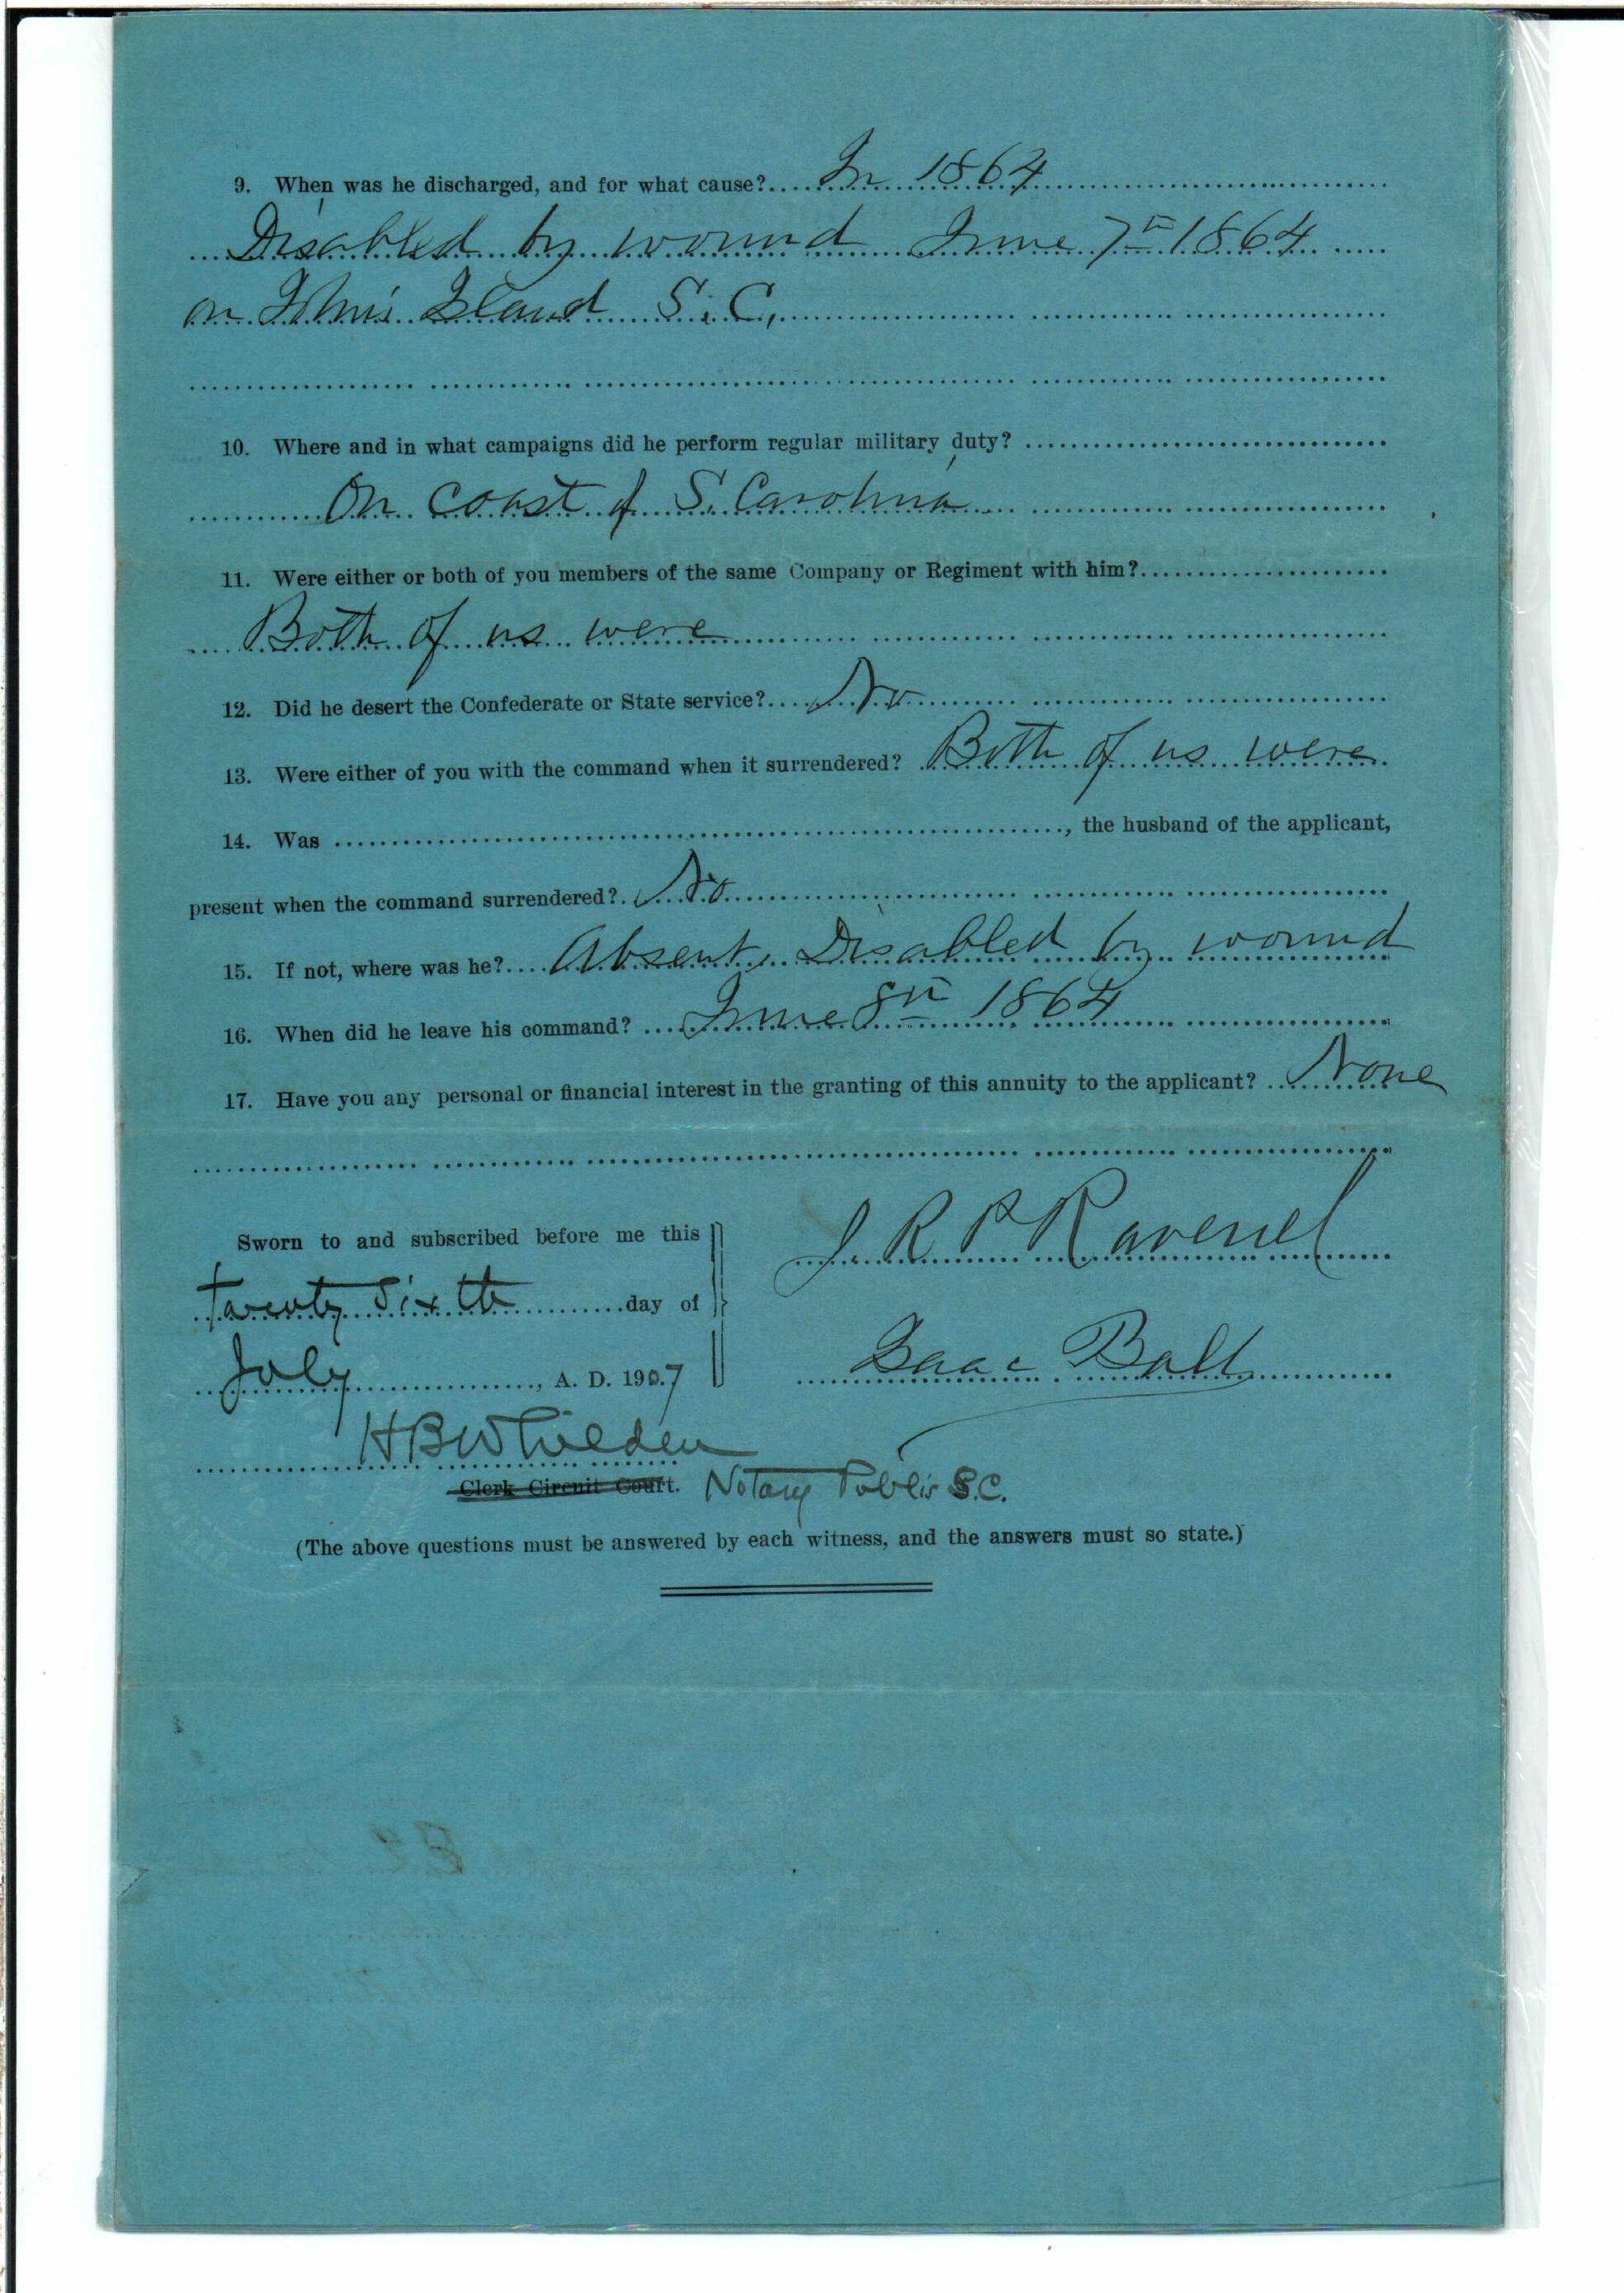 9. When was he discharged, and for what cause? In 1864
Disabled by wound June 7th 1864
on John's Island S. C,
10. Where and in what campaigns did he perform regular military duty?
On coast of S. Carolina
11. Were either or both of you members of the same Company or Regiment with him?
Both of us were
12. Did he desert the Confederate or State service? No
13. Were either of you with the command when it surrendered? Both of us were
14. Was , the husband of the applicant,
present when the command surrendered? No
15. If not, where was he? Absent, Disabled by wound
16. When did he leave his command? June 8th 1864
17. Have you any personal or financial interest in the granting of this annuity to the applicant? None
Sworn to and subscribed before me this
J. R. P. Ravenel
Twenty Sixth day of
Isaac Ball
July, A. D. 1907
H B Whilden
Clerk Circuit Court. Notary Public S.C.
(The above questions must be answered by each witness, and the answers must so state.)